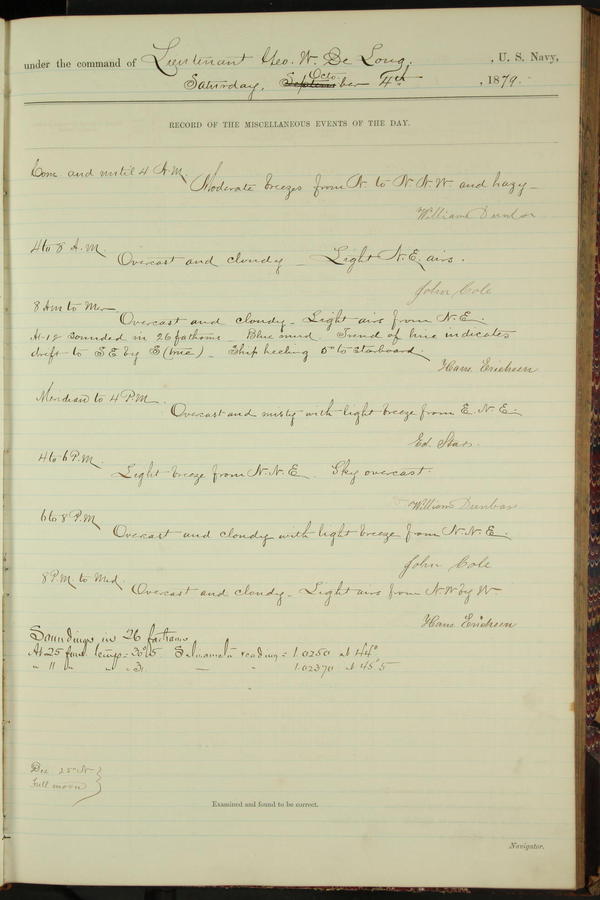 under the command of Lieutenant Geo. W. De Long, , U. S. Navy,
Saturday, September Octo 4th , 1879.
RECORD OF THE MISCELLANEOUS EVENTS OF THE DAY.
Com. and until 4 A.M.
Moderate breezes from N. to N.N.W. and hazy
William Dunbar
4 to 8 A.M.
Overcast and cloudy _ Light N.E. airs.
John Cole
8 Am to Mer
Overcast and cloudy _ Light airs from N.E.
At 12 sounded in 26 fathoms Blue mud Trend of line indicates
drift to SE by S (true) _ Ship heeling 5° to starboard.
Hans Erichsen
Meridian to 4 P.M.
Overcast and misty with light breeze from E.N.E.
Ed. Starr.
4 to 6 P.M.
Light breeze from N.N.E. Sky overcast.
William Dunbar
6 to 8 P.M.
Overcast and cloudy with light breeze from N.N.E.
John Cole
8 P.M. to Mid.
Overcast and cloudy _ Light airs from N.W by W
Hans Erichsen
Soundings in 26 fathoms
At 25 temp = reading = 1.0250 at 44°
" 11 " " 1.02370 at 45°5
Dec
Full moon
Examined and found to be correct.
Navigator.